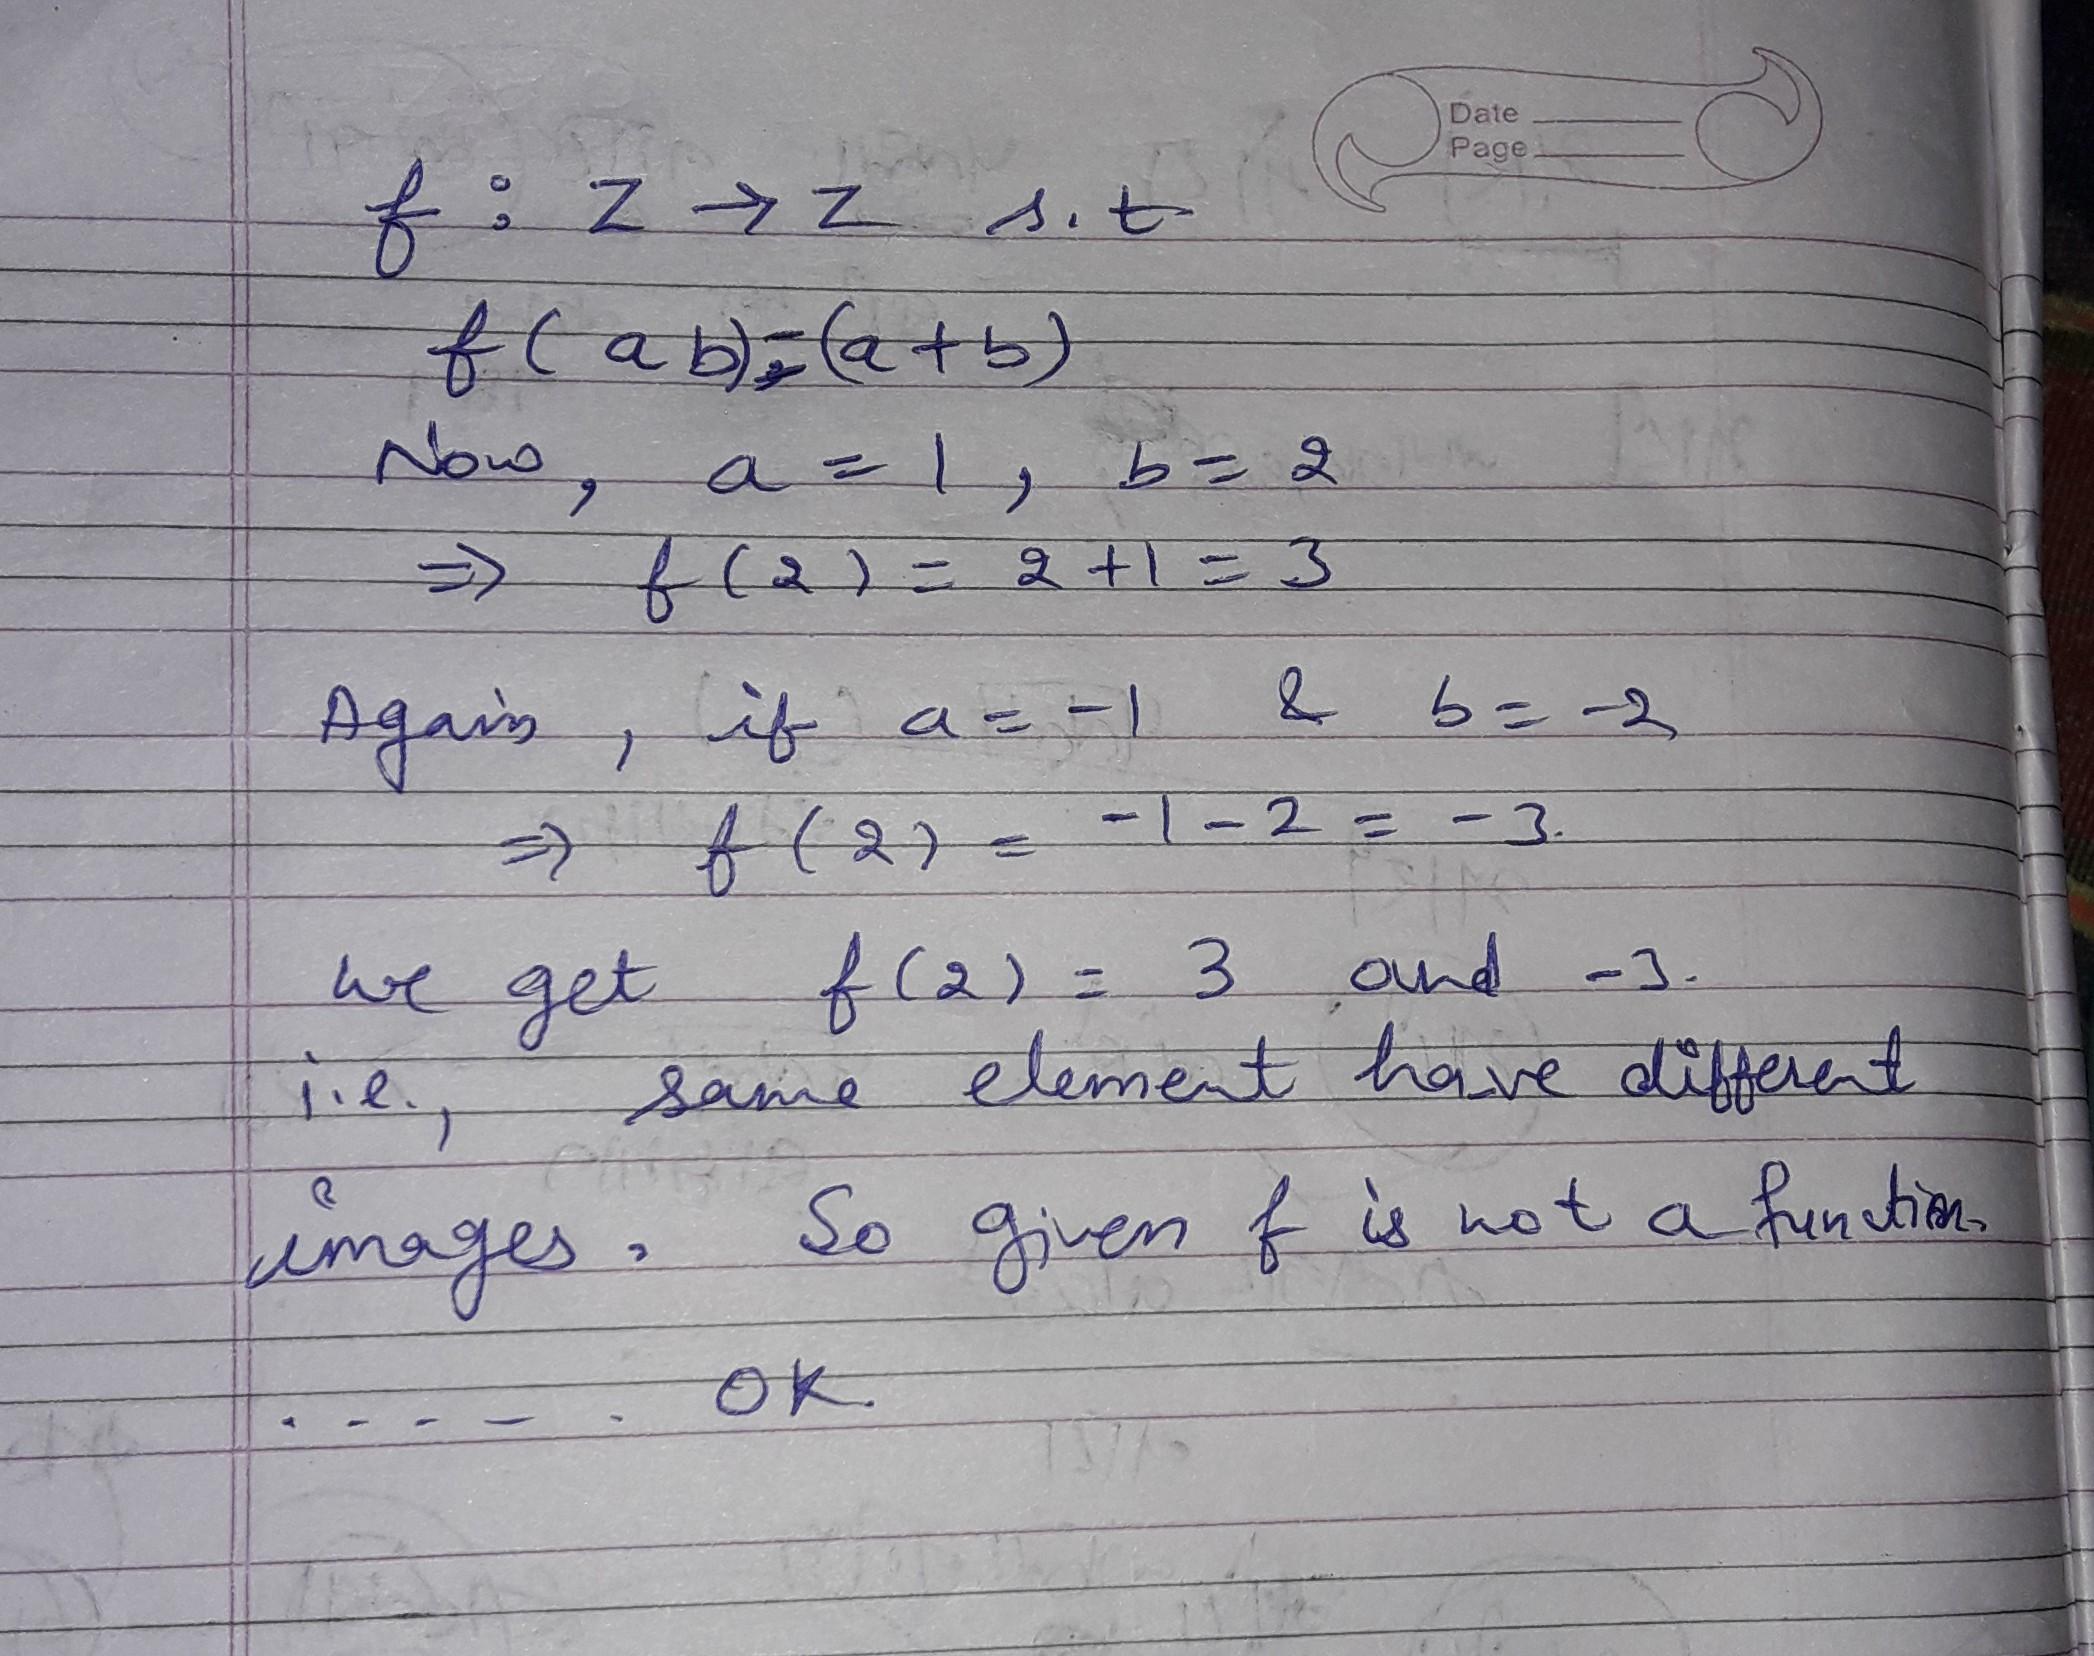 Date
Page
f : Z → Z s.t
f(ab) = (a+b)
Now, a = 1, b = 2
⇒ f(2) = 2+1 = 3
Again, if a = -1 & b = -2
⇒ f(2) = -1-2 = -3.
we get f(2) = 3 and -3.
i.e., same element have different
images. So given f is not a function.
. - - - . OK.